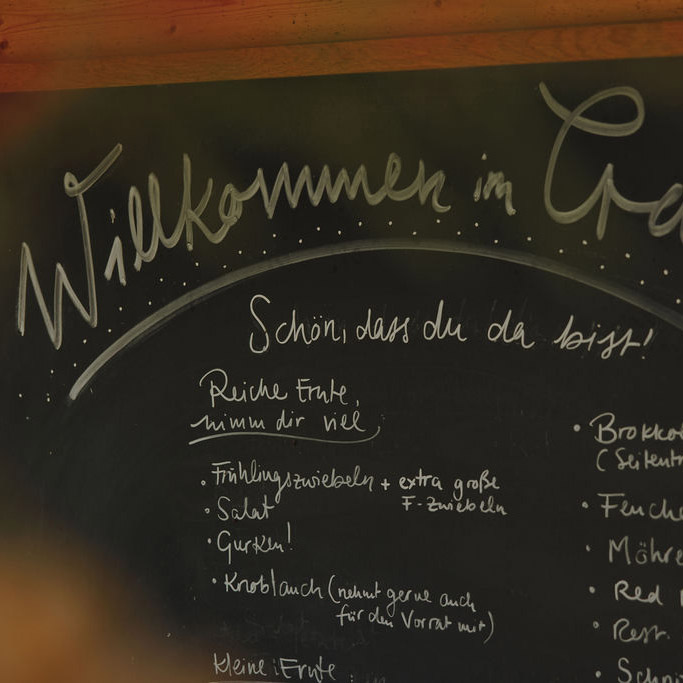 Willkommen im
Schön, dass du da bist!
Reiche Ernte,
nimm dir viel
· Frühlingszwiebeln + extra große
F-Zwiebeln
· Salat
· Gurken!
· Knoblauch (nehmt gerne auch
für den Vorrat mit)
Kleine Ernte
· Brokko
(Seitent
· Fenche
· Möhre
· Red
· Rest.
· Schni